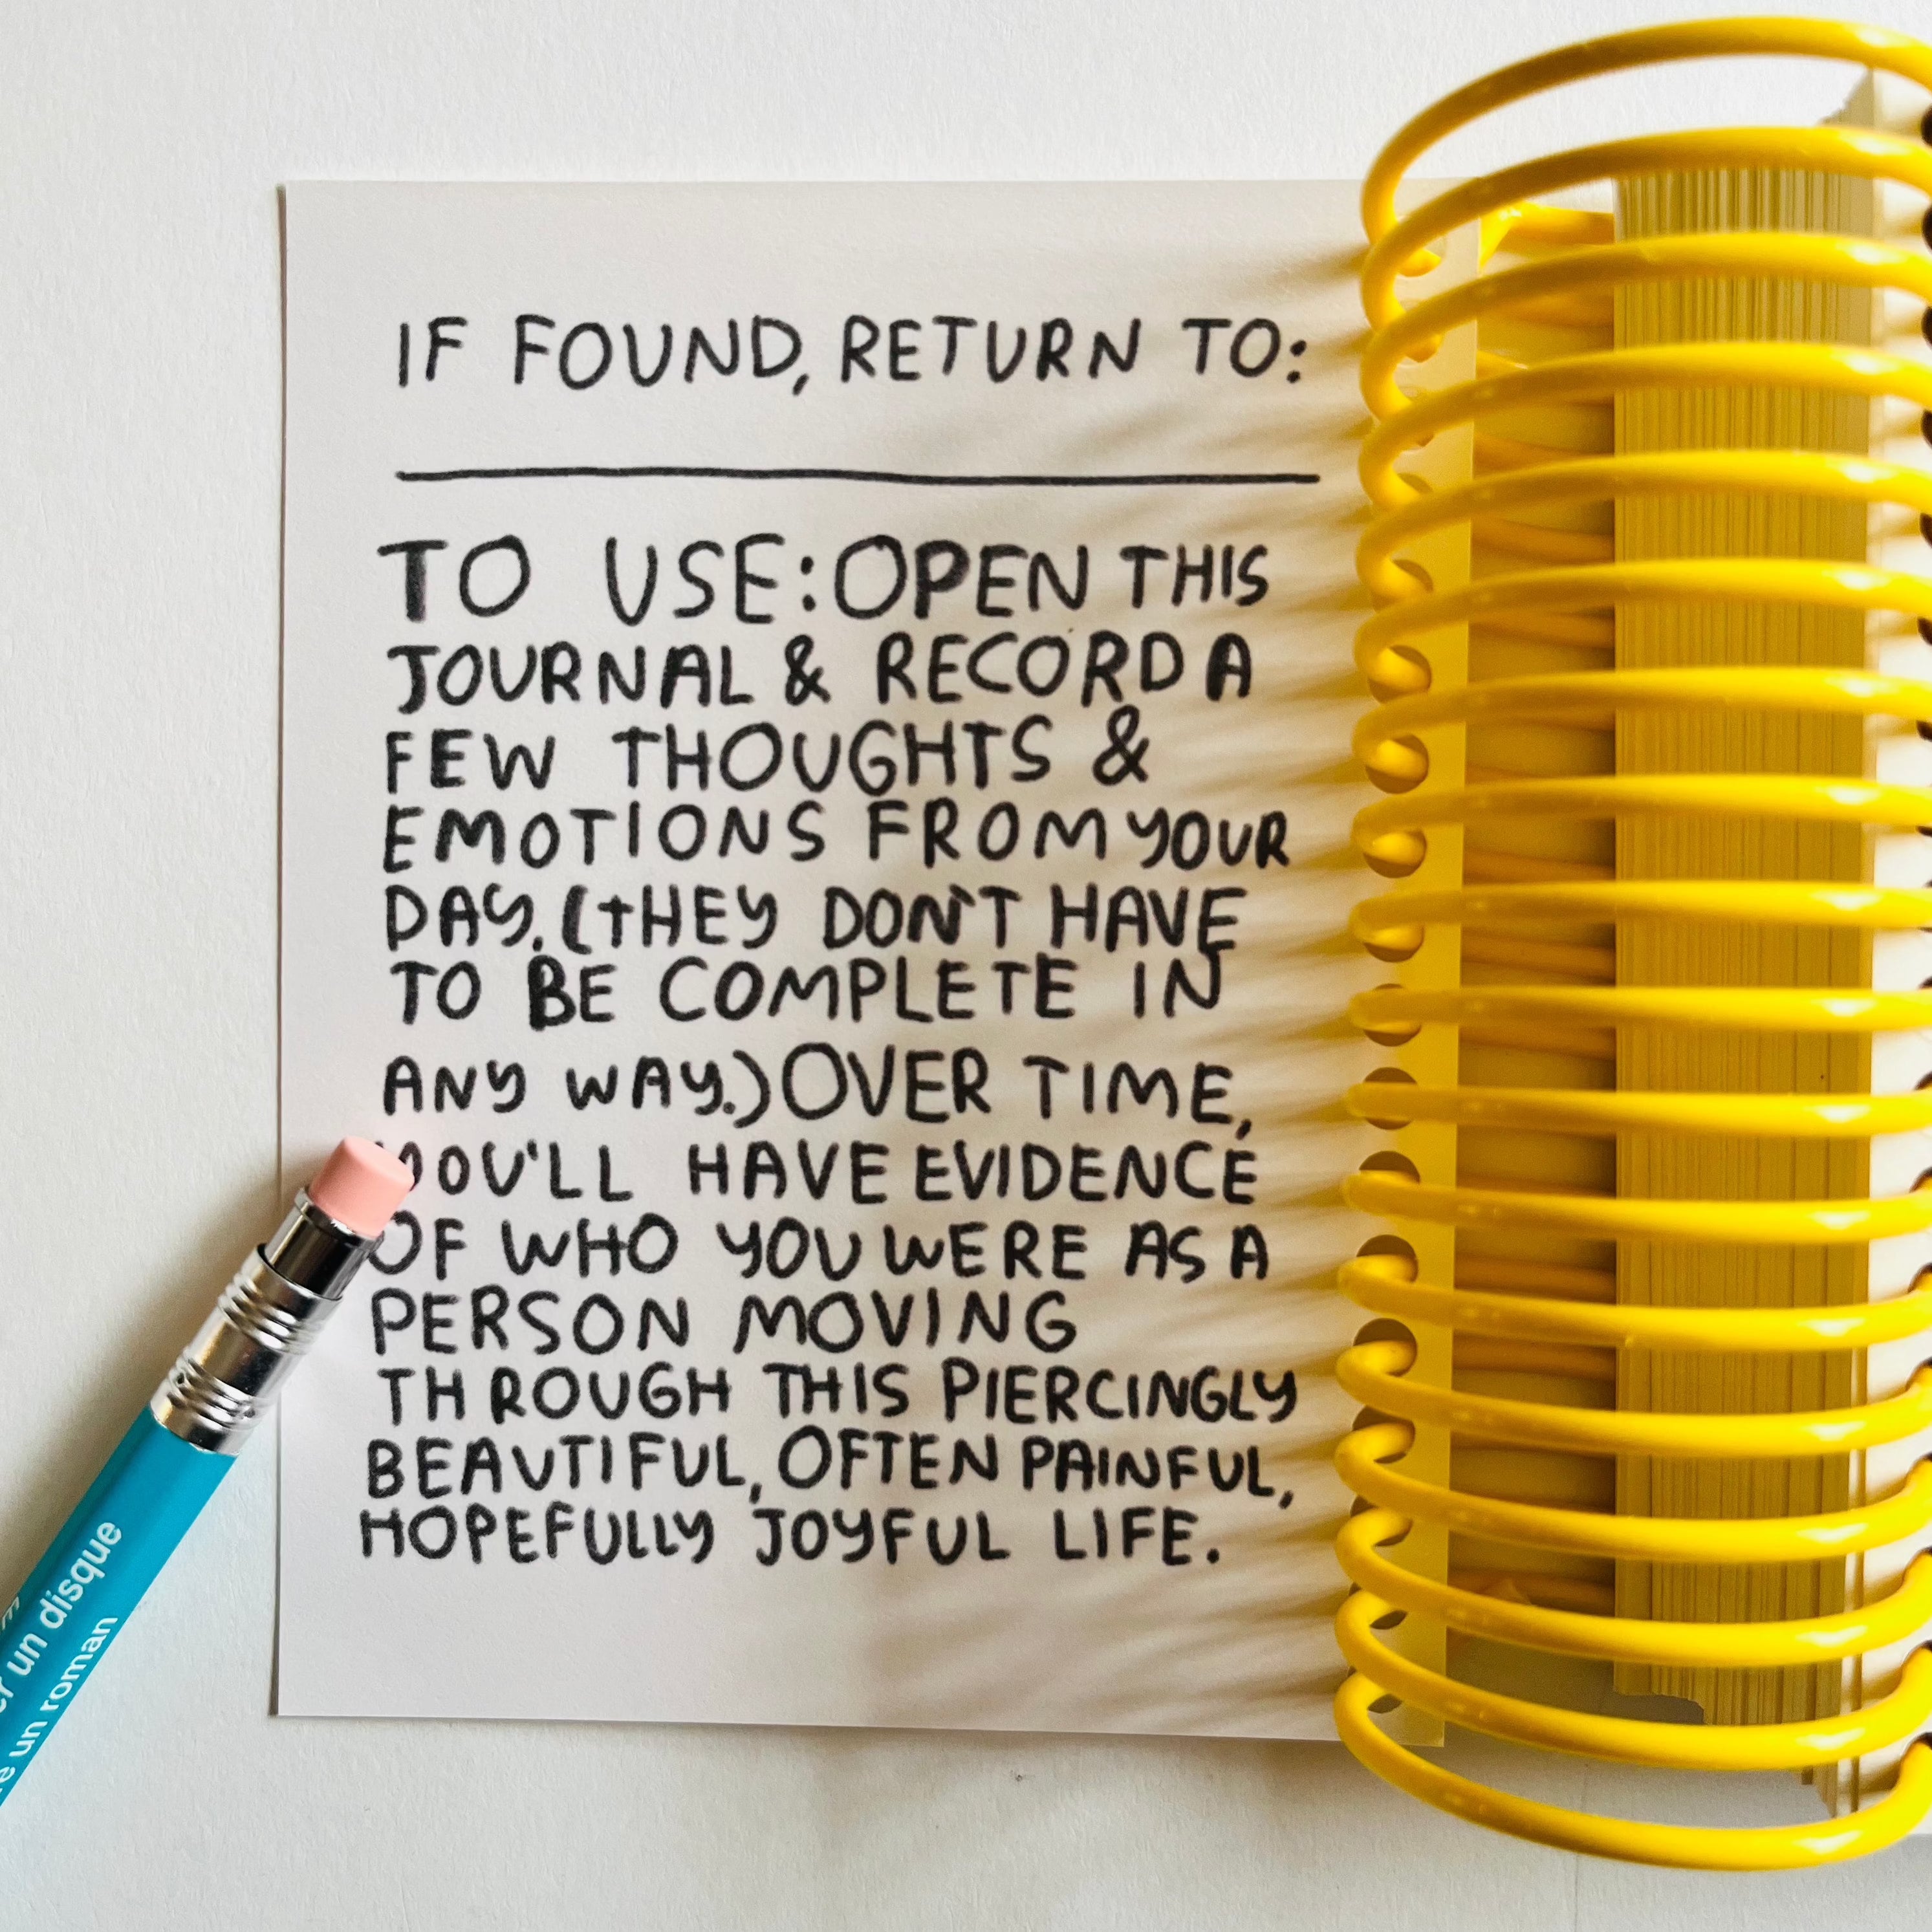 IF FOUND, RETURN TO:
TO USE: OPEN THIS
JOURNAL & RECORD A
FEW THOUGHTS &
EMOTIONS FROM YOUR
DAY. (THEY DON'T HAVE
TO BE COMPLETE IN
ANY WAY.) OVER TIME,
YOU'LL HAVE EVIDENCE
OF WHO YOU WERE AS A
PERSON MOVING
THROUGH THIS PIERCINGLY
BEAUTIFUL, OFTEN PAINFUL,
HOPEFULLY JOYFUL LIFE.
un disque
un roman